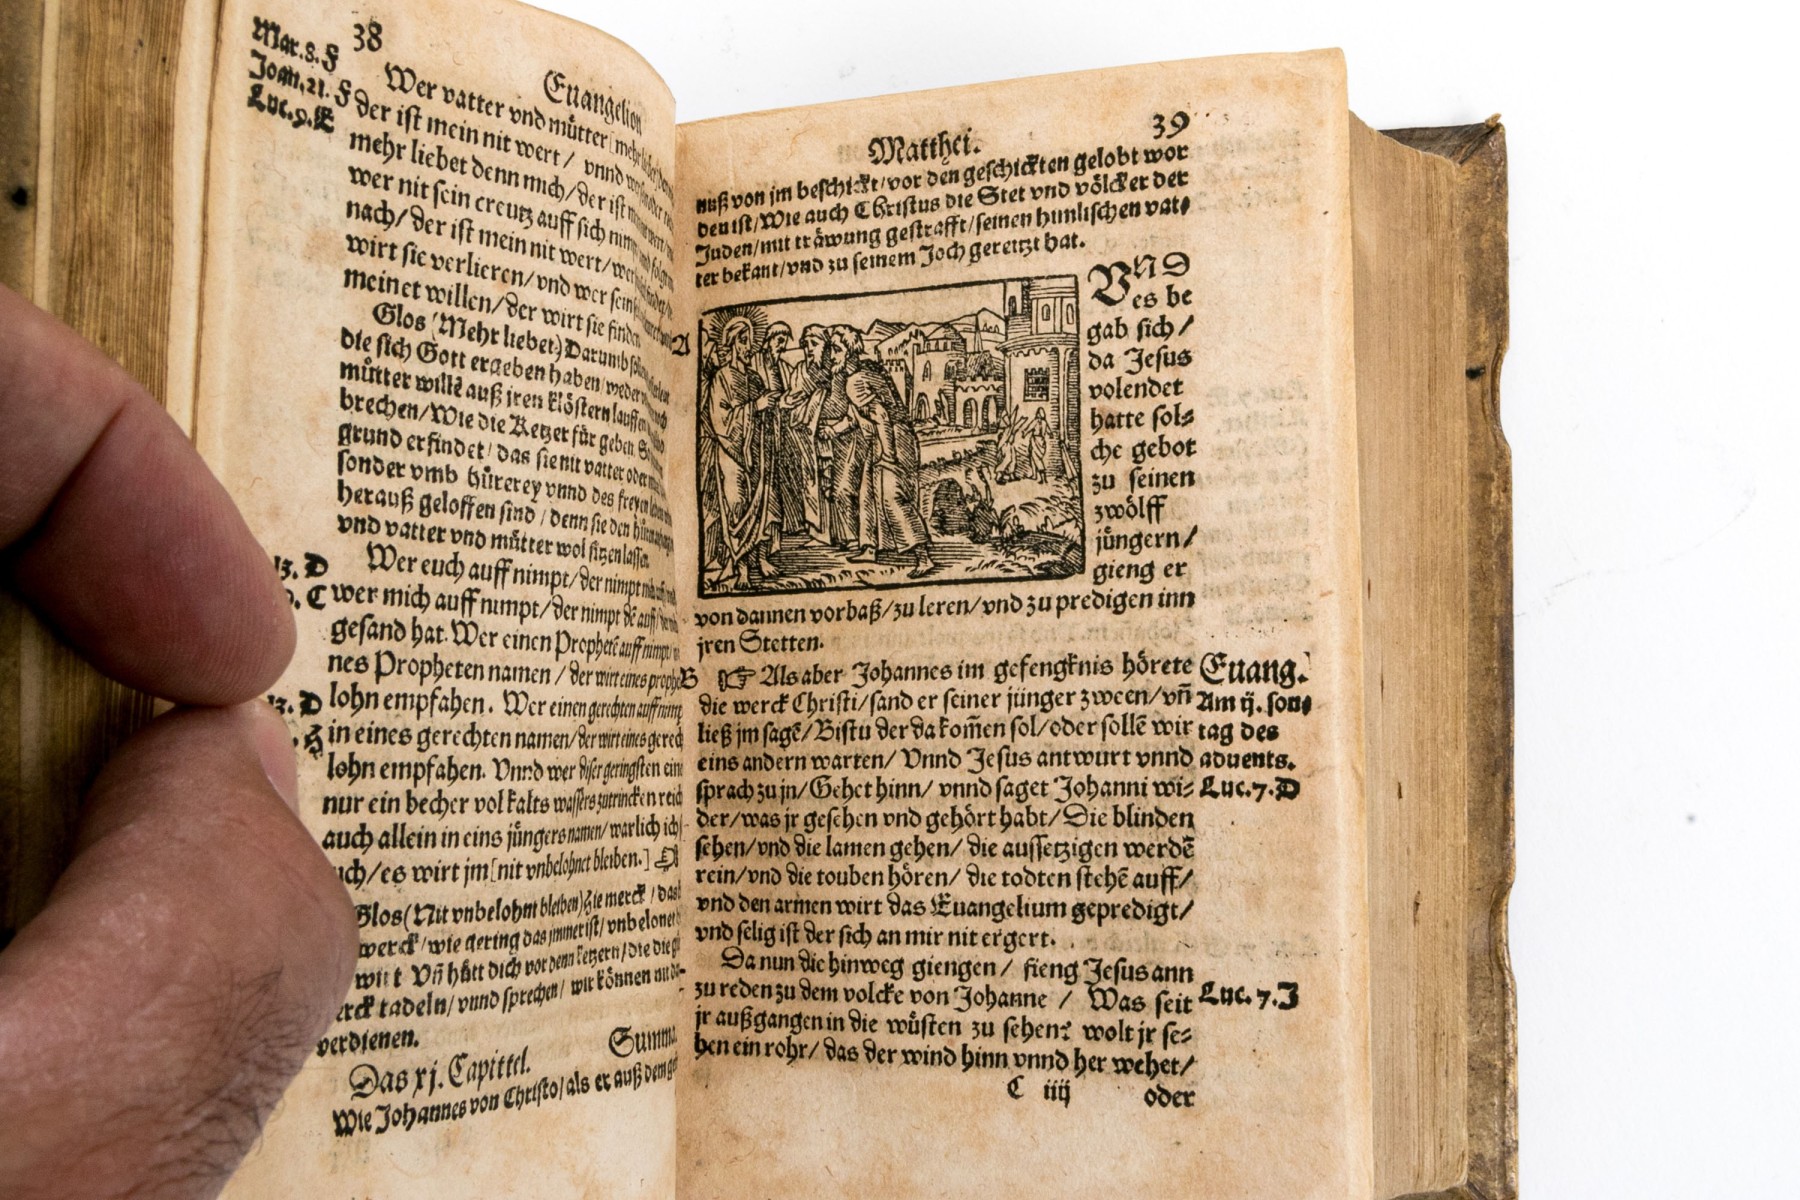 38
Euangelion
Mar.8.F
Joan.21.F
Luc.9.E
Wer vatter vnd můtter [mehr
der ist mein nit wert / vnnd
mehr liebet denn mich / der ist
wer nit sein creutz auff sich
nach / der ist mein nit wert / wer
wirt sie verlieren / vnd wer sein
meinet willen / der wirt sie finden
Glos (Mehr liebet) Darumb
die sich Gott ergeben haben / weder
můtter willē auß jren klöstern lauffen
brechen / Wie die Ketzer für geben
grund erfindet / das sie nit vatter oder
sonder vmb hůrerey vnnd des freyen
herauß geloffen sind / denn sie den
vnd vatter vnd můtter wol sitzen lassen
13. D
C
Wer euch auff nimpt / der nimpt
wer mich auff nimpt / der nimpt dē auff /
gesand hat. Wer einen Prophetē auff nimpt
nes Propheten namen / der wirt eines prophe
13. D
lohn empfahen. Wer einen gerechten auff nimpt
in eines gerechten namen / der wirt eines gerech
lohn empfahen. Vnnd wer diser geringsten eine
nur ein becher vol kalts wassers zutrincken reich
auch allein in eins jůngers namen / warlich ich
uch / es wirt jm [nit vnbelohnet bleiben.]
Glos (Nit vnbelohnt bleiben) Hie merck / das
werck / wie gering das jmmer ist / vnbelonet
wirt Vñ hůtt dich vor denn ketzern / die die
erck tadeln / vnnd sprechen / wir können
verdienen.
Das xj. Capittel.
Summa
Wie Johannes von Christo / als er auß dem
39
Matthei.
nuß von jm beschickt / vor den geschickten gelobt wor
den ist / Wie auch Christus die Stet vnd völcker der
Juden / mit träwung gestrafft / seinen himlischen vat-
ter bekant / vnd zu seinem Joch geretzt hat.
A
VND
es be
gab sich /
da Jesus
volendet
hatte sol-
che gebot
zu seinen
zwölff
jüngern /
gieng er
von dannen vorbaß / zu leren / vnd zu predigen inn
jren Stetten.
B
☞ Als aber Johannes im gefengknis hörete
die werck Christi / sand er seiner jünger zween / vñ
ließ jm sagē / Bistu der da kom̄en sol / oder sollē wir
eins andern warten / Vnnd Jesus antwurt vnnd
sprach zu jn / Gehet hinn / vnnd saget Johanni wi-
der / was jr gesehen vnd gehört habt / Die blinden
sehen / vnd die lamen gehen / die aussetzigen werdē
rein / vnd die touben hören / die todten stehē auff /
vnd den armen wirt das Euangelium gepredigt /
vnd selig ist der sich an mir nit ergert.
Euang.
Am ij. son-
tag des
aduents.
Luc.7.D
Da nun die hinweg giengen / fieng Jesus ann
zu reden zu dem volcke von Johanne / Was seit
jr außgangen in die wůsten zu sehen? wolt jr se-
hen ein rohr / das der wind hinn vnnd her wehet /
Luc. 7. J
C iiij
oder